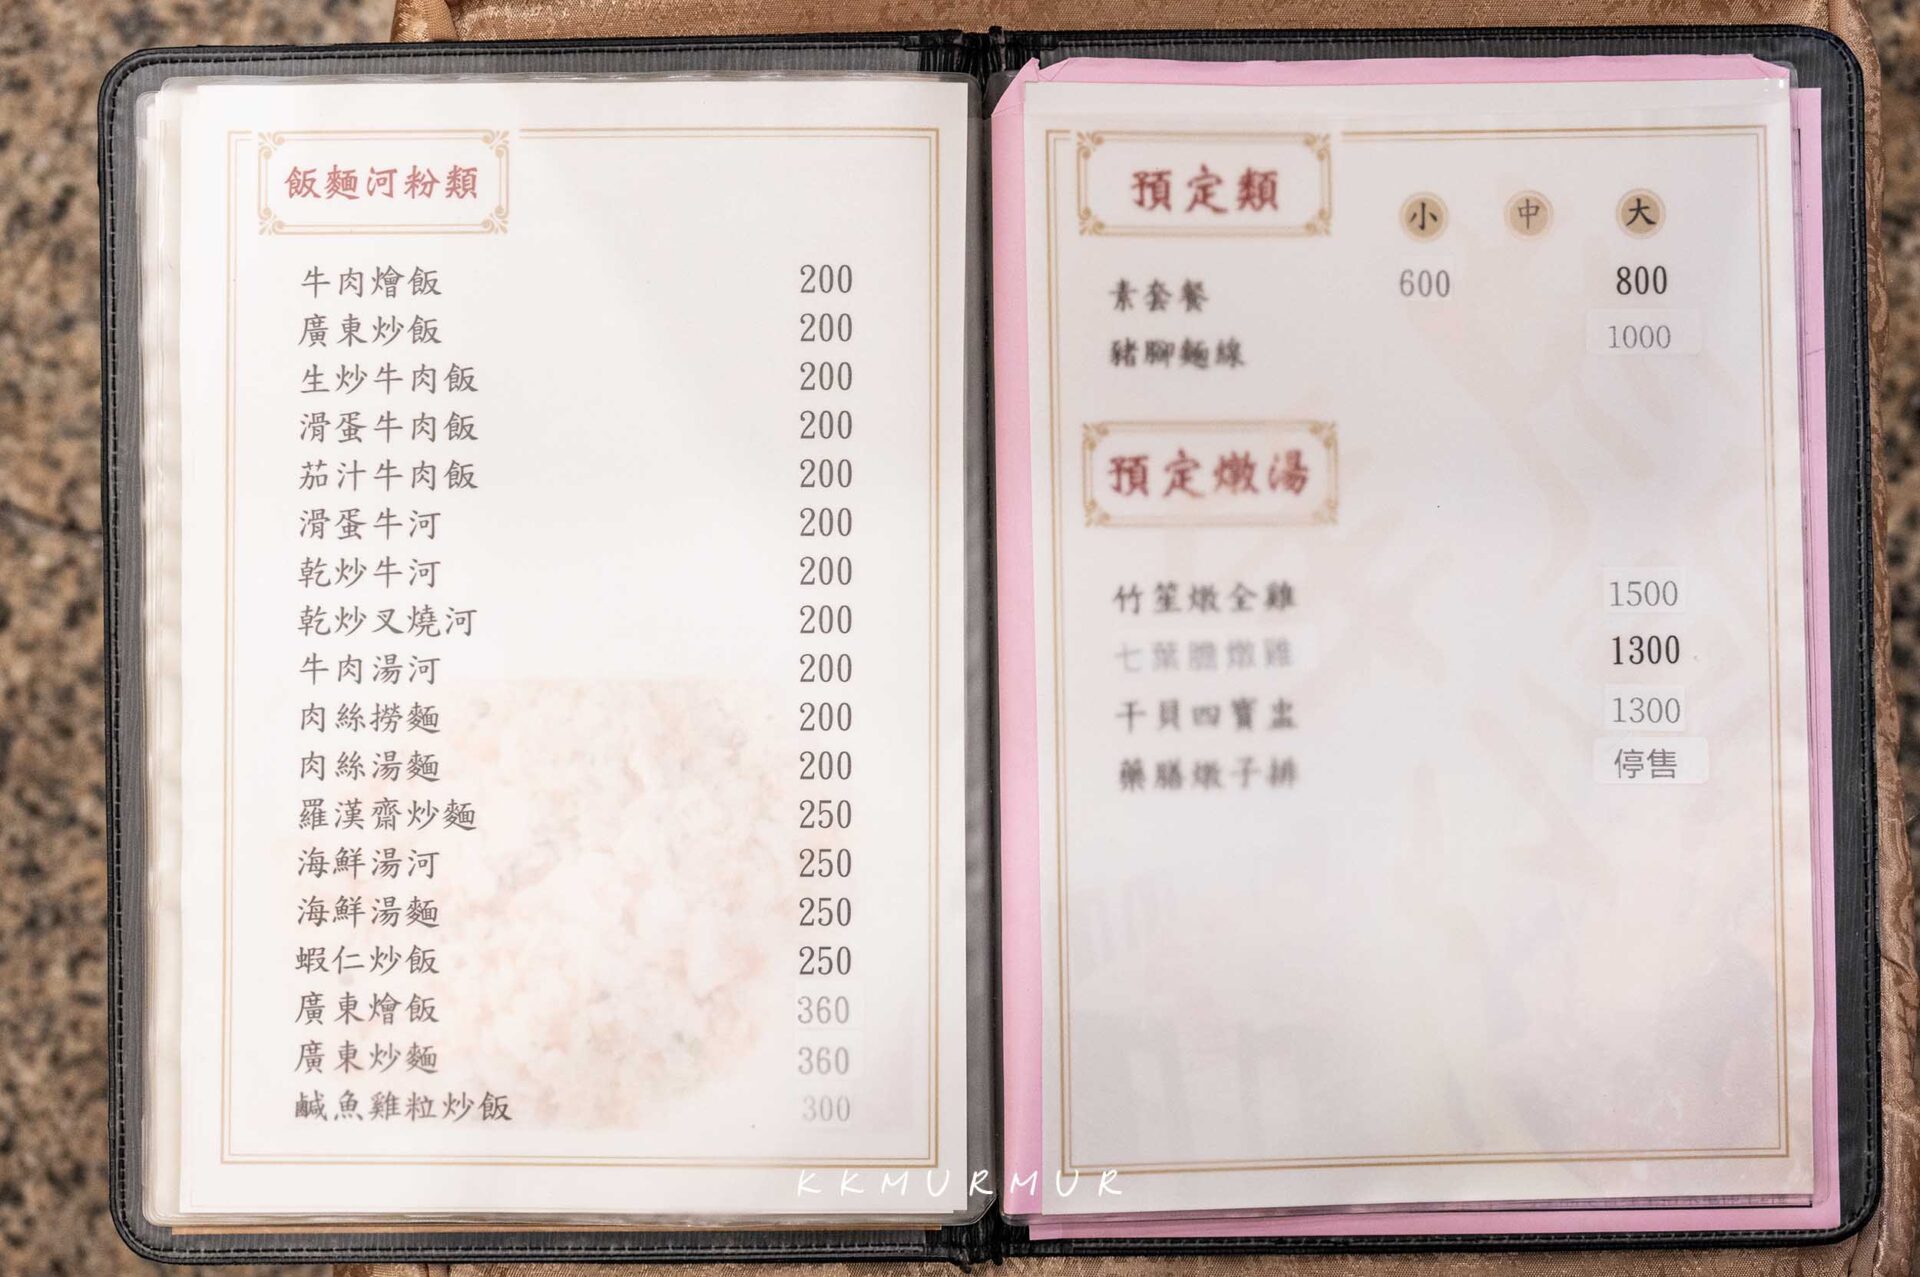 飯麵河粉類
牛肉燴飯 200
廣東炒飯 200
生炒牛肉飯 200
滑蛋牛肉飯 200
茄汁牛肉飯 200
滑蛋牛河 200
乾炒牛河 200
乾炒叉燒河 200
牛肉湯河 200
肉絲撈麵 200
肉絲湯麵 200
羅漢齋炒麵 250
海鮮湯河 250
海鮮湯麵 250
蝦仁炒飯 250
廣東燴飯 360
廣東炒麵 360
鹹魚雞粒炒飯 300
預定類 小 中 大
素套餐 600 800
豬腳麵線 1000
預定燉湯
竹笙燉全雞 1500
七葉膽燉雞 1300
干貝四寶盅 1300
藥膳燉子排 停售
KKMURMUR